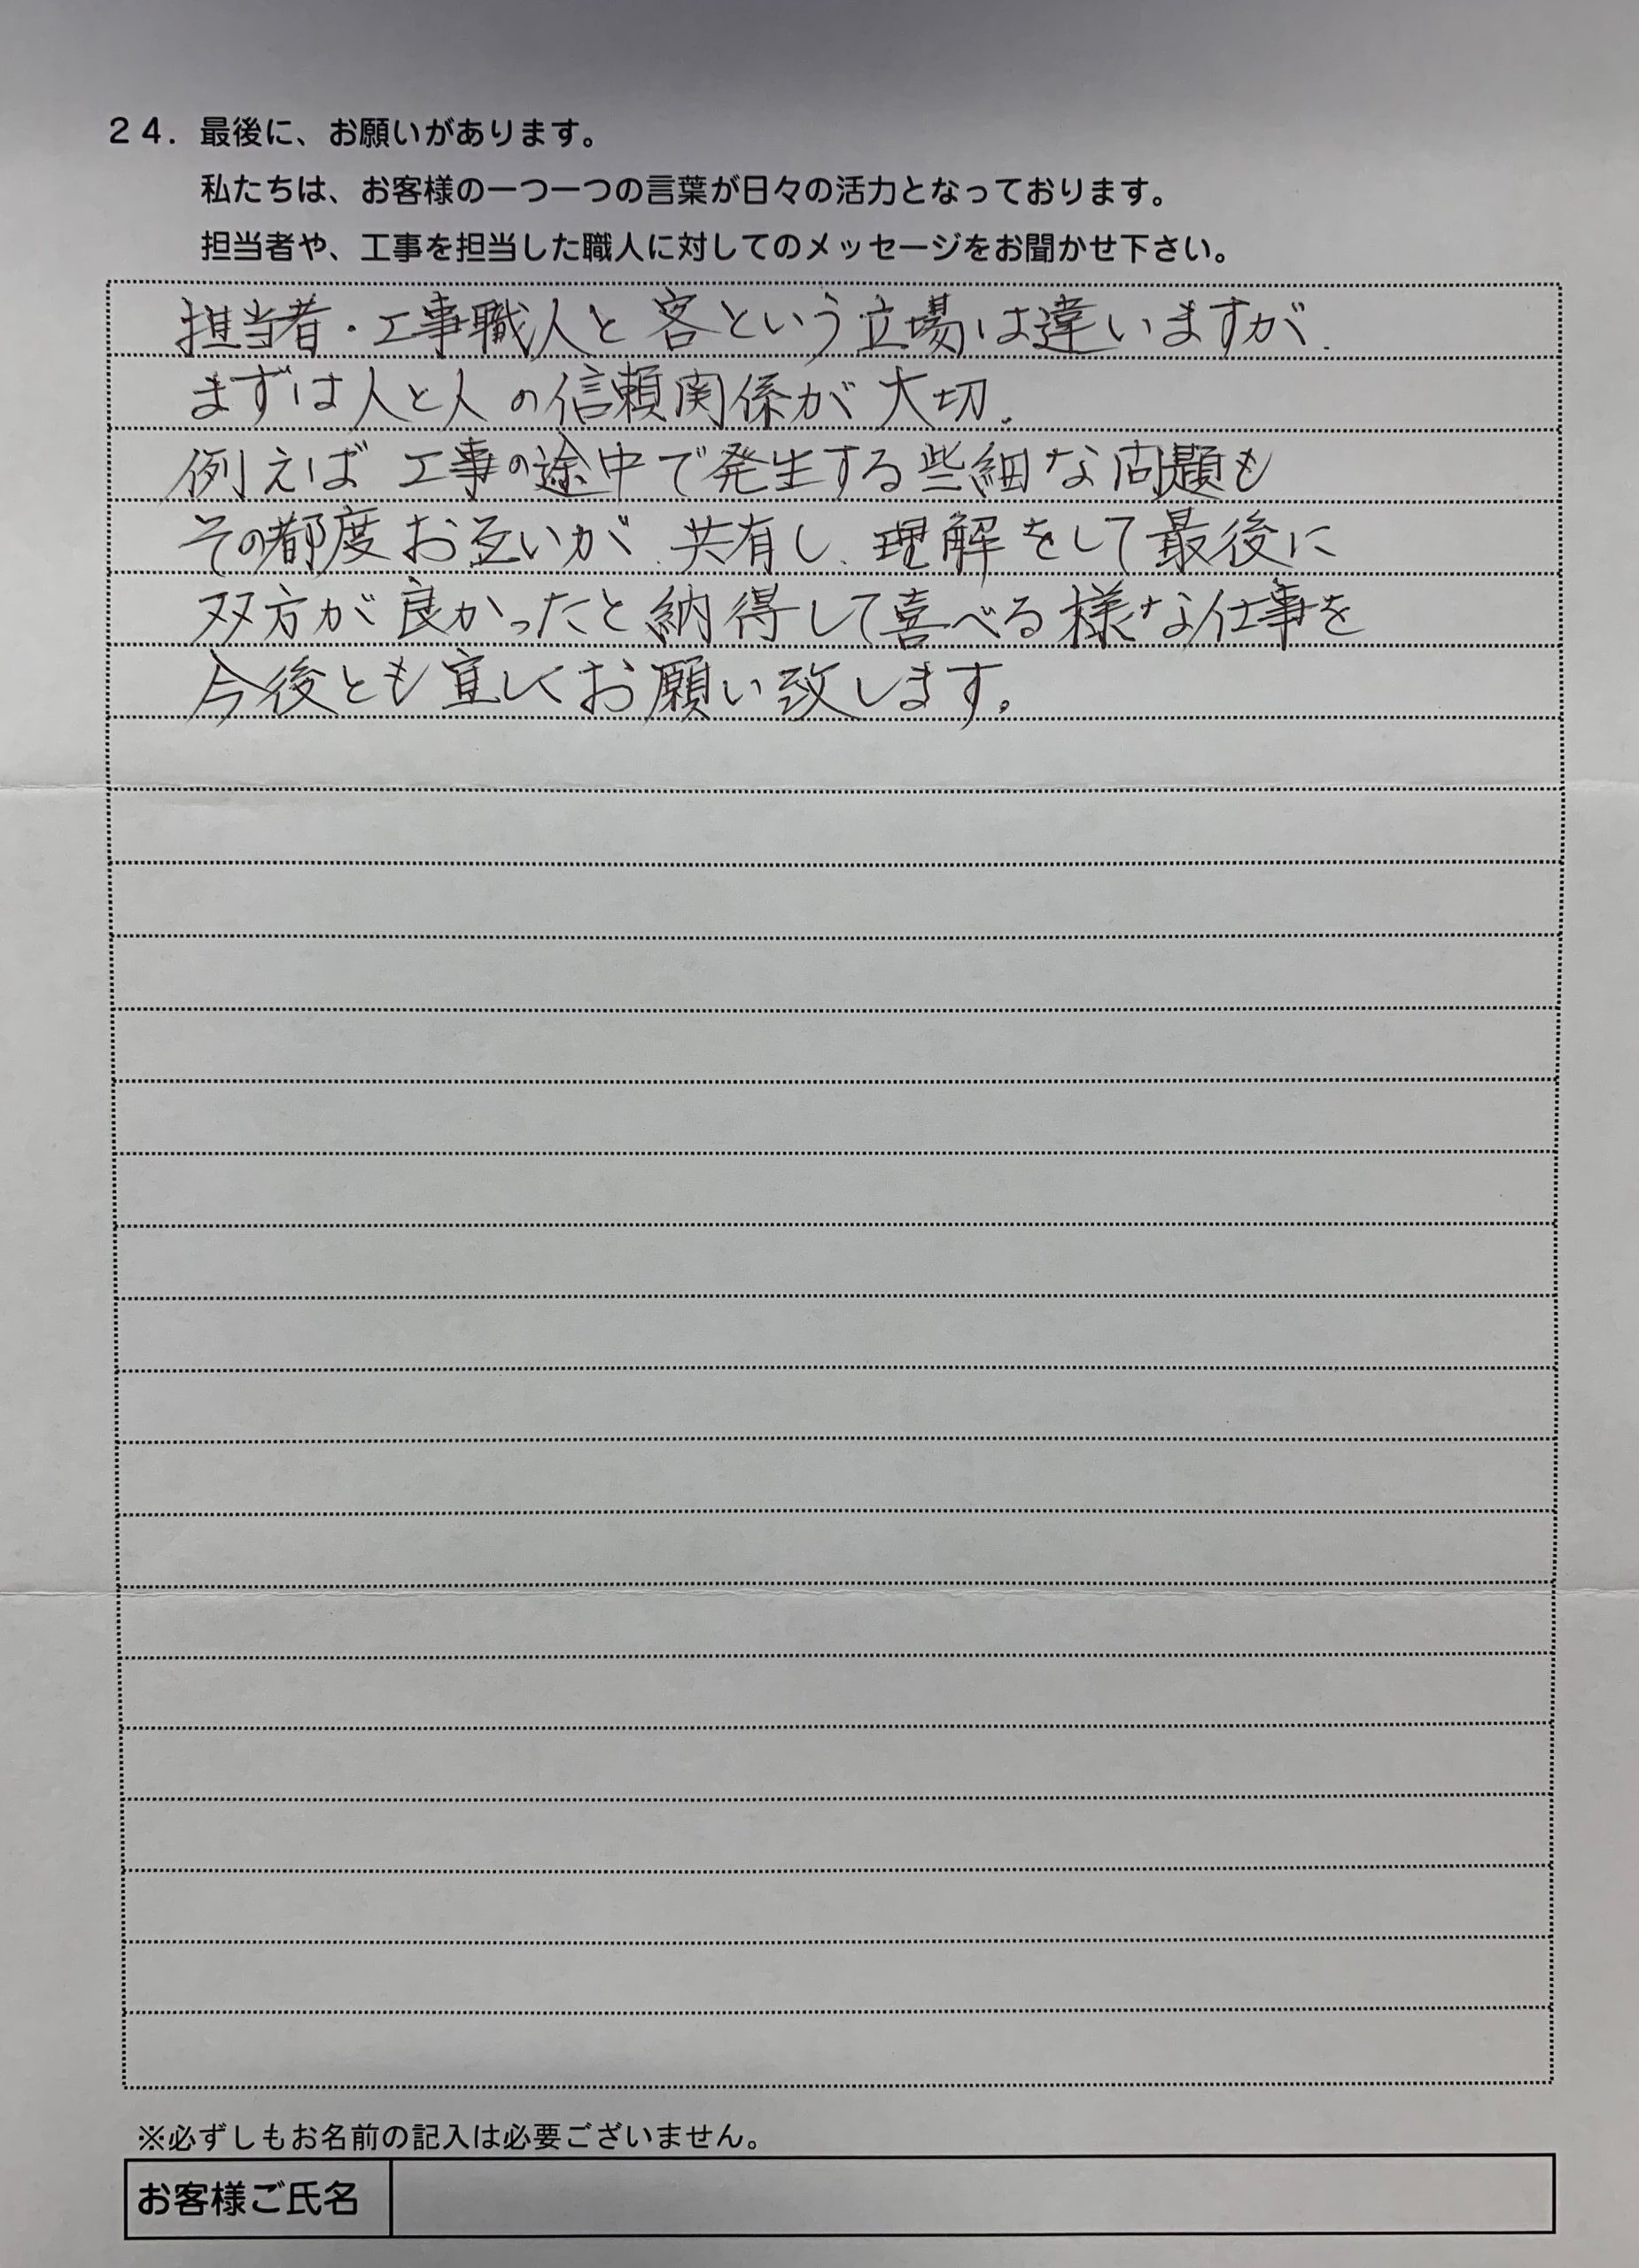 24. 最後に、お願いがあります。
私たちは、お客様の一つ一つの言葉が日々の活力となっております。
担当者や、工事を担当した職人に対してのメッセージをお聞かせ下さい。
担当者・工事職人と客という立場は違いますが、
まずは人と人の信頼関係が大切。
例えば工事の途中で発生する些細な問題も
その都度お互いが、共有し、理解をして最後に
双方が良かったと納得して喜べる様な仕事を
今後とも宜しくお願い致します。
※必ずしもお名前の記入は必要ございません。
お客様ご氏名